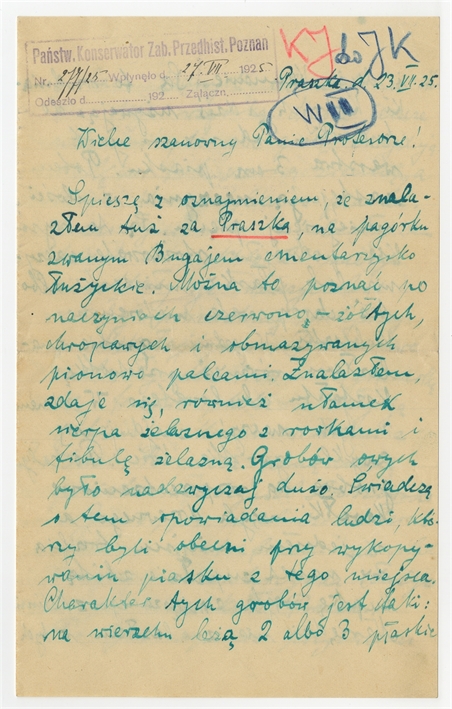 Państw. Konserwator Zab. Przedhist. Poznań
Nr. 277/25 Wpłynęło d. 27-VII- 1925
Odeszło d. 192 Załączn.
KJ do JK
W
Praszka d. 23.VII.25.
Wielce szanowny Panie Profesorze!
Spieszę z oznajmieniem, że znala-
złem tuż za Praszką, na pagórku
zwanym Bugajem cmentarzysko
łużyckie. Można to poznać po
naczyniach czerwono-żółtych,
chropawych i obmazywanych
pionowo palcami. Znalazłem,
zdaje się, również ułamek
sierpa żelaznego z rostkami i
fibulę żelazną. Grobów owych
było nadzwyczaj dużo. Świadczą
o tem opowiadania ludzi, któ-
rzy byli obecni przy wykopy-
waniu piasku z tego miejsca.
Charakter tych grobów jest taki:
na wierzchu leżą 2 albo 3 płaskie